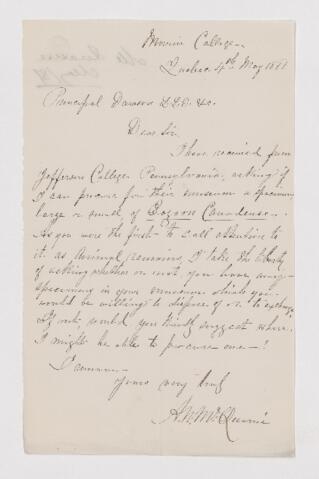 Morrin College
Quebec 4th May 1881
Principal Dawson LLD. &c.
Dear Sir
I have received from
Jefferson College Pennsylvania, asking if
I can procure for their museum a specimen
large or small of Eozoon Canadense.
As you were the first to call attention to
it as animal remains, I take the liberty
of asking whether or not you have any
specimens in your museum which you
would be willing to dispose of or to exchange.
If not, would you kindly suggest where
I might be able to procure one!
I remain
Yours very truly